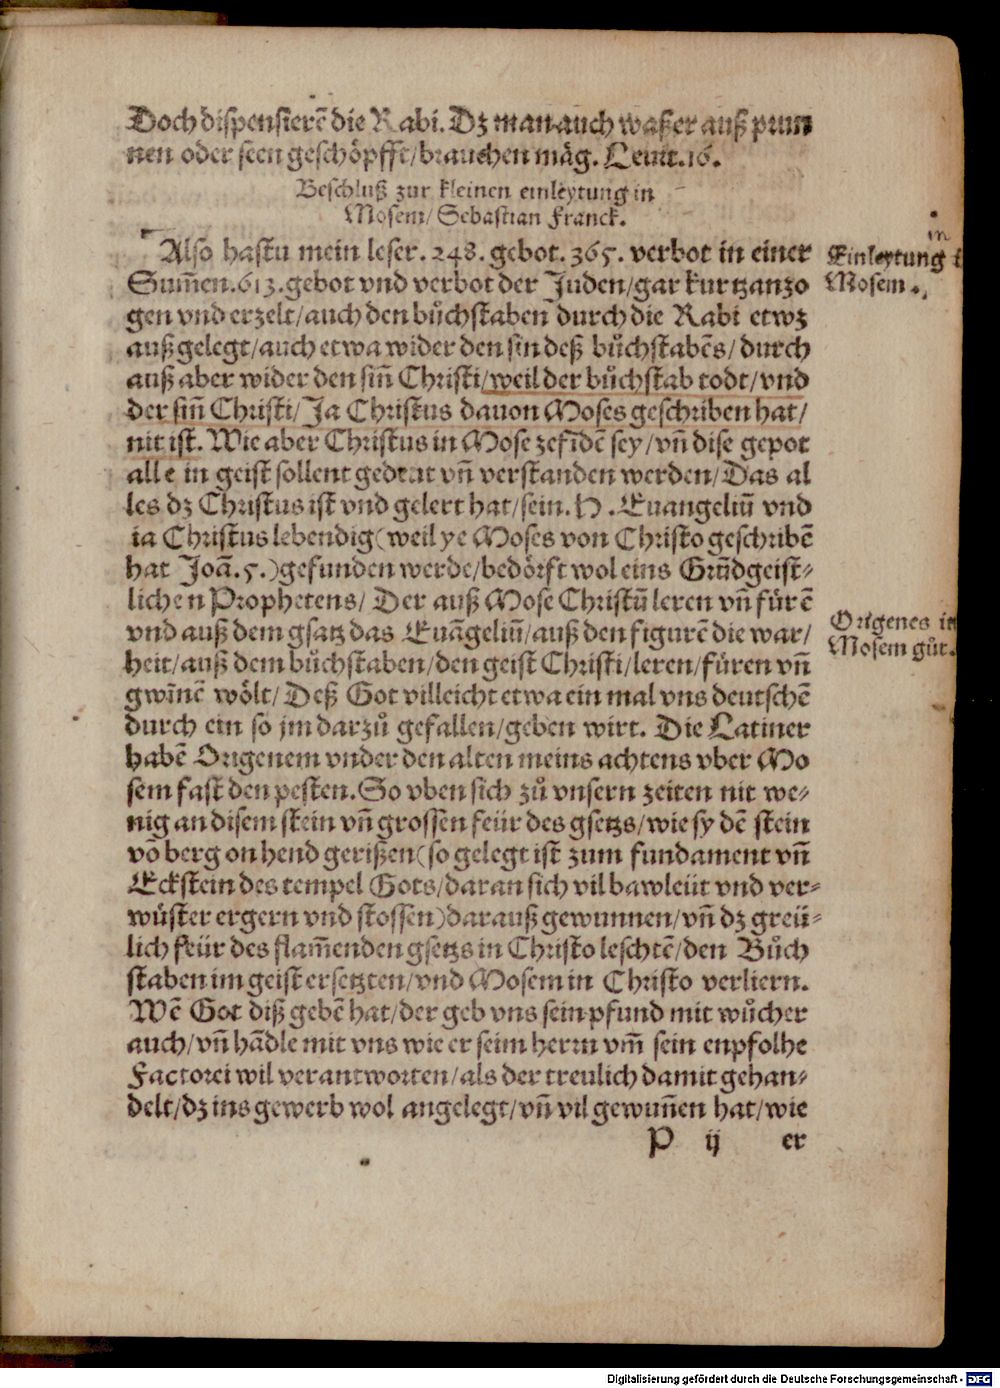 Doch dispensierẽ die Rabi. Dz man auch waßer auß prun
nen oder seen geschöpfft/brauchen mäg. Leuit.16.
Beschluß zur kleinen einleytung in
Mosem/ Sebastian Franck.
Also hastu mein leser. 248. gebot. 365. verbot in einer
Sum̃en. 613. gebot vnd verbot der Juden/gar kurtz anzo
gen vnd erzelt/auch den bůchstaben durch die Rabi etwz
auß gelegt/auch etwa wider den sin deß bůchstabẽs/ durch
auß aber wider den siñ Christi/weil der bůchstab todt/vnd
der siñ Christi/Ja Christus dauon Moses geschriben hat/
nit ist. Wie aber Christus in Mose zefĩdẽ sey/vñ dise gepot
alle in geist sollent gedeut vñ verstanden werden/Das al
les dz Christus ist vnd gelert hat/sein. H. Euangeliũ vnd
ia Christus lebendig(weil ye Moses von Christo geschribẽ
hat Joã. 5.)gefunden werde/bedörft wol eins Grũdgeist⸗
lichen Prophetens/ Der auß Mose Christũ leren vñ fürẽ
vnd auß dem gsatz das Euãgeliũ/auß den figurẽ die war/
heit/auß dem bůchstaben/den geist Christi/leren/füren vñ
gwĩnẽ wölt/ Deß Got villeicht etwa ein mal vns deutschẽ
durch ein so jm darzů gefallen/geben wirt. Die Latiner
habẽ Origenem vnder den alten meins achtens vber Mo
sem fast den pesten. So vben sich zů vnsern zeiten nit we⸗
nig an disem stein vñ grossen feür des gsetzs/wie sy dẽ stein
võ berg on hend gerißen(so gelegt ist zum fundament vñ
Eckstein des tempel Gots/daran sich vil bawleüt vnd ver⸗
wüster ergern vnd stossen)darauß gewunnen/vñ dz greü⸗
lich feür des flam̃enden gsetzs in Christo leschtẽ/den Bůch
staben im geist ersetzten/vnd Mosem in Christo verliern.
Wẽ Got diß gebẽ hat/der geb vns sein pfund mit wůcher
auch/vñ hãdle mit vns wie er seim herrn vm̃ sein enpfolhe
Factorei wil verantworten/als der treulich damit gehan⸗
delt/dz ins gewerb wol angelegt/vñ vil gewuñen hat/wie
P ij er
in
Einleytung
Mosem.
Origenes in
Mosem gůt.
Digitalisierung gefördert durch die Deutsche Forschungsgemeinschaft - DFG